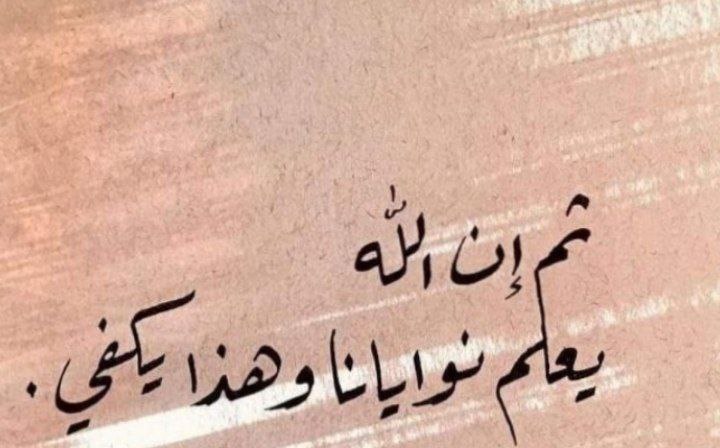 ثم إن الله
يعلم نوايانا وهذا يكفي.